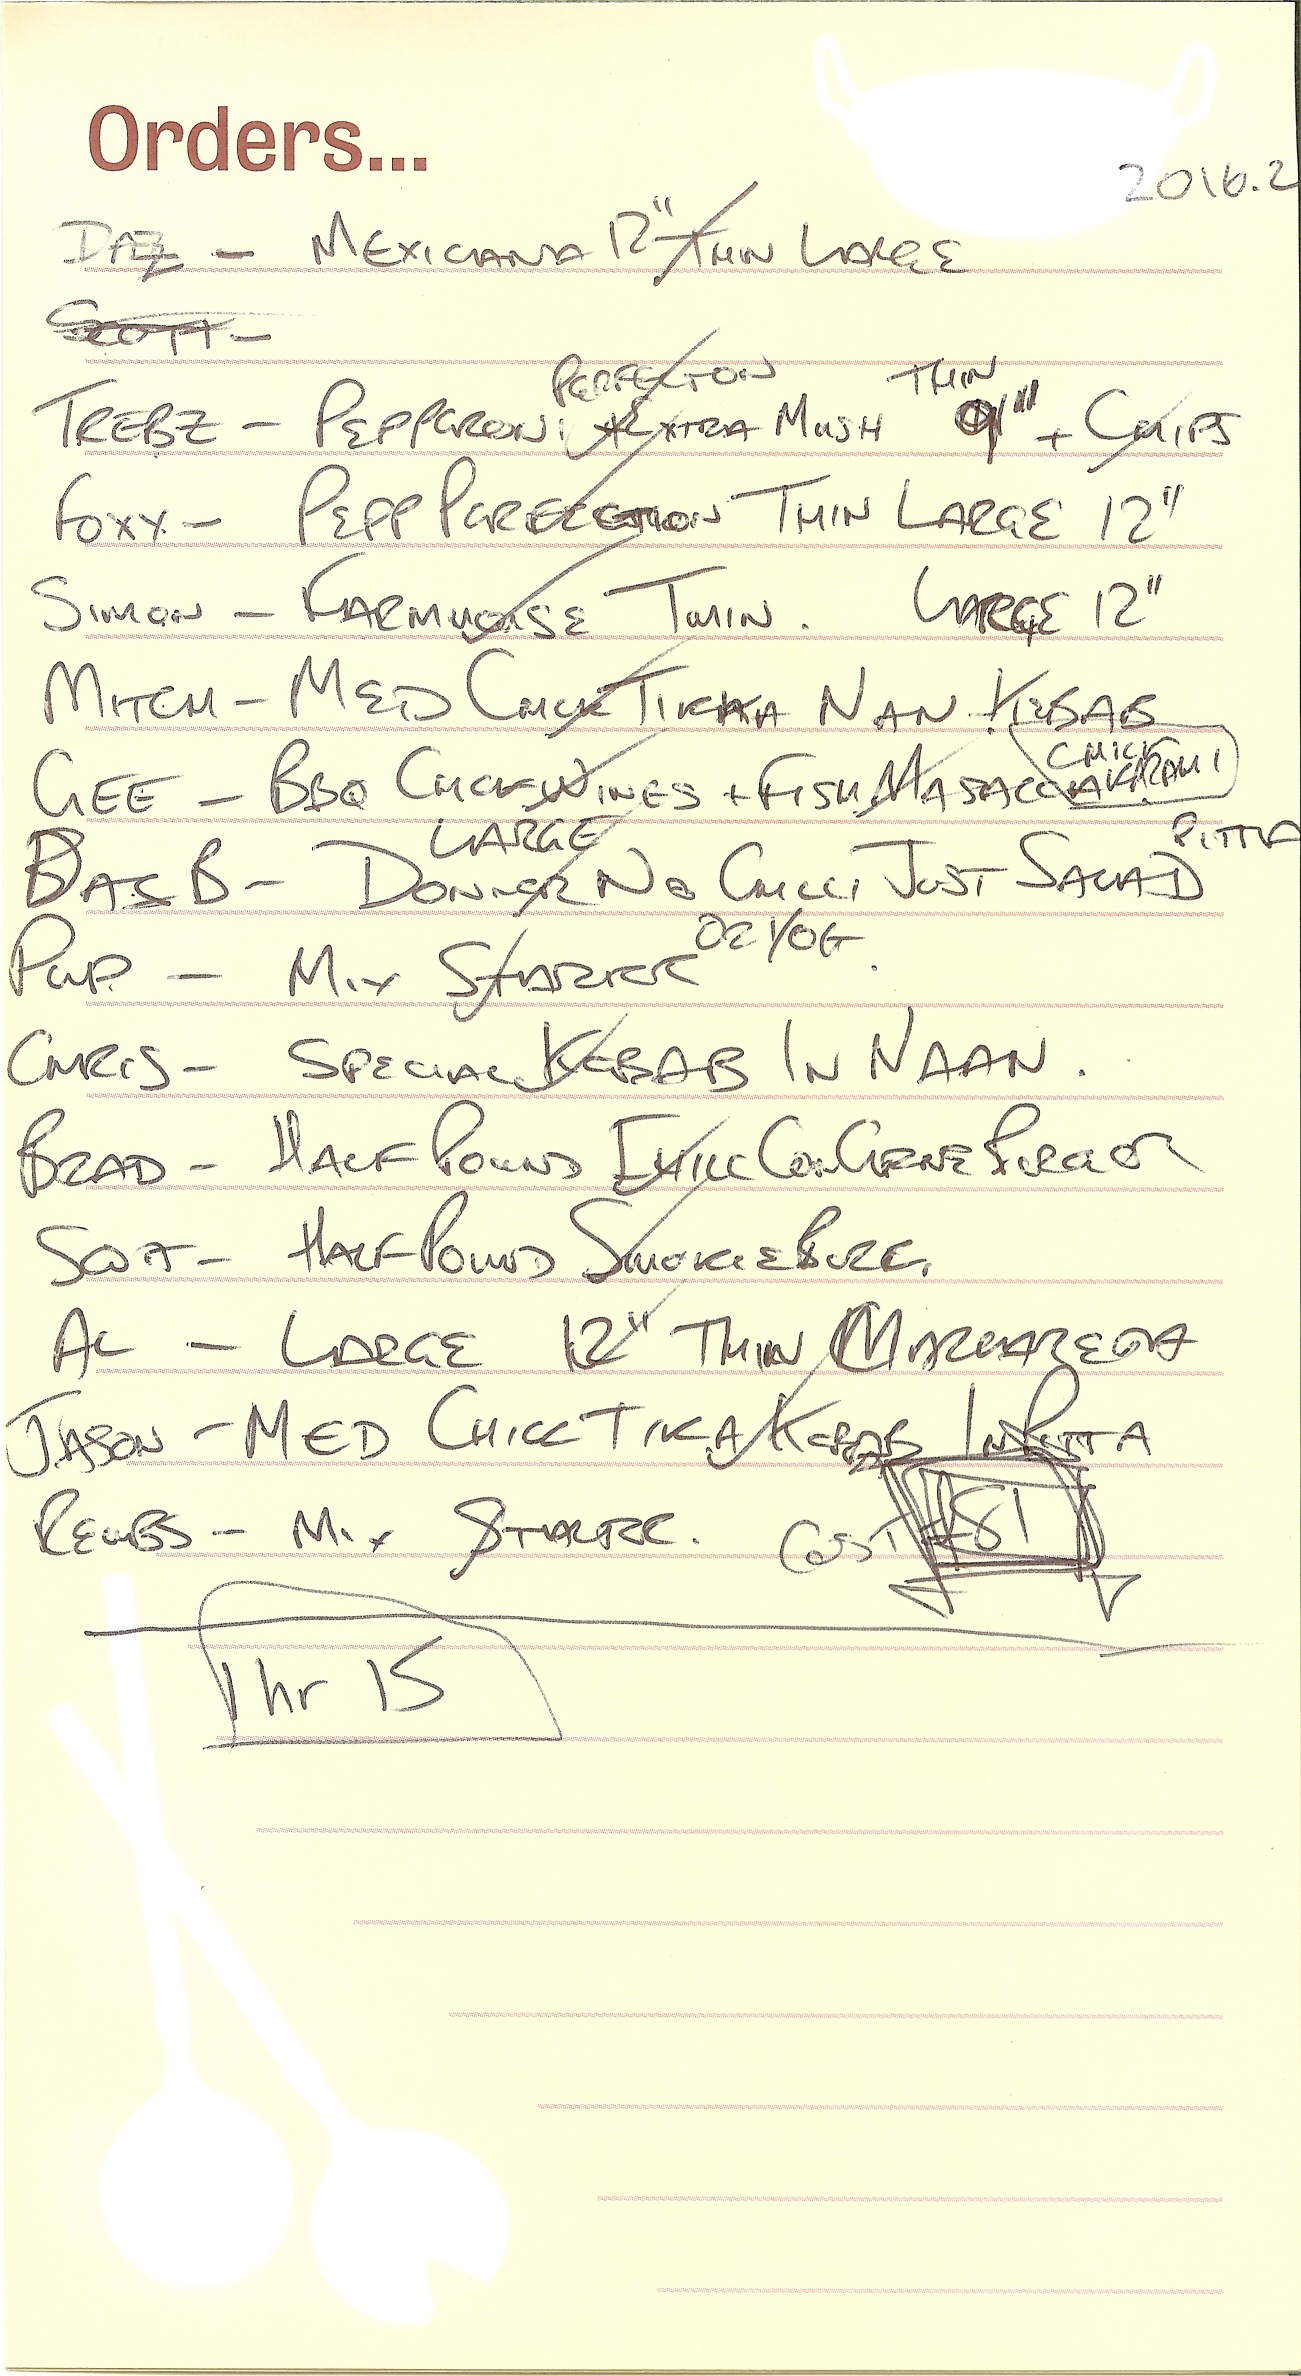 Orders...
2016.2
DAZ - MEXICANA 12" THIN LARGE
SCOTT -
PERFECTON THIN
TREBZ - PEPPERONI EXTRA MUSH 9" + CHIPS
FOXY - PEPP PERFECTION THIN LARGE 12"
SIMON - FARMHOUSE THIN. LARGE 12"
MITCH - MED CHICK TIKKA NAN KEBAB
CHICK
GEE - BBQ CHICK WINGS + FISH MASALA
LARGE PITTA
DAZ B - DONNER NO CHILLI JUST SALAD
OR YOG.
PUP - MIX STARTER
CHRIS - SPECIAL KEBAB IN NAAN.
BRAD - HALF POUND CHILLI CON CARNE BURGER
SCOTT - HALF POUND SMOKIE BURG.
AL - LARGE 12" THIN MARGAREGTA
JASON - MED CHICK TIKA KEBAB IN PITTA
REUBS - MIX STARTER. COST £81
1 hr 15